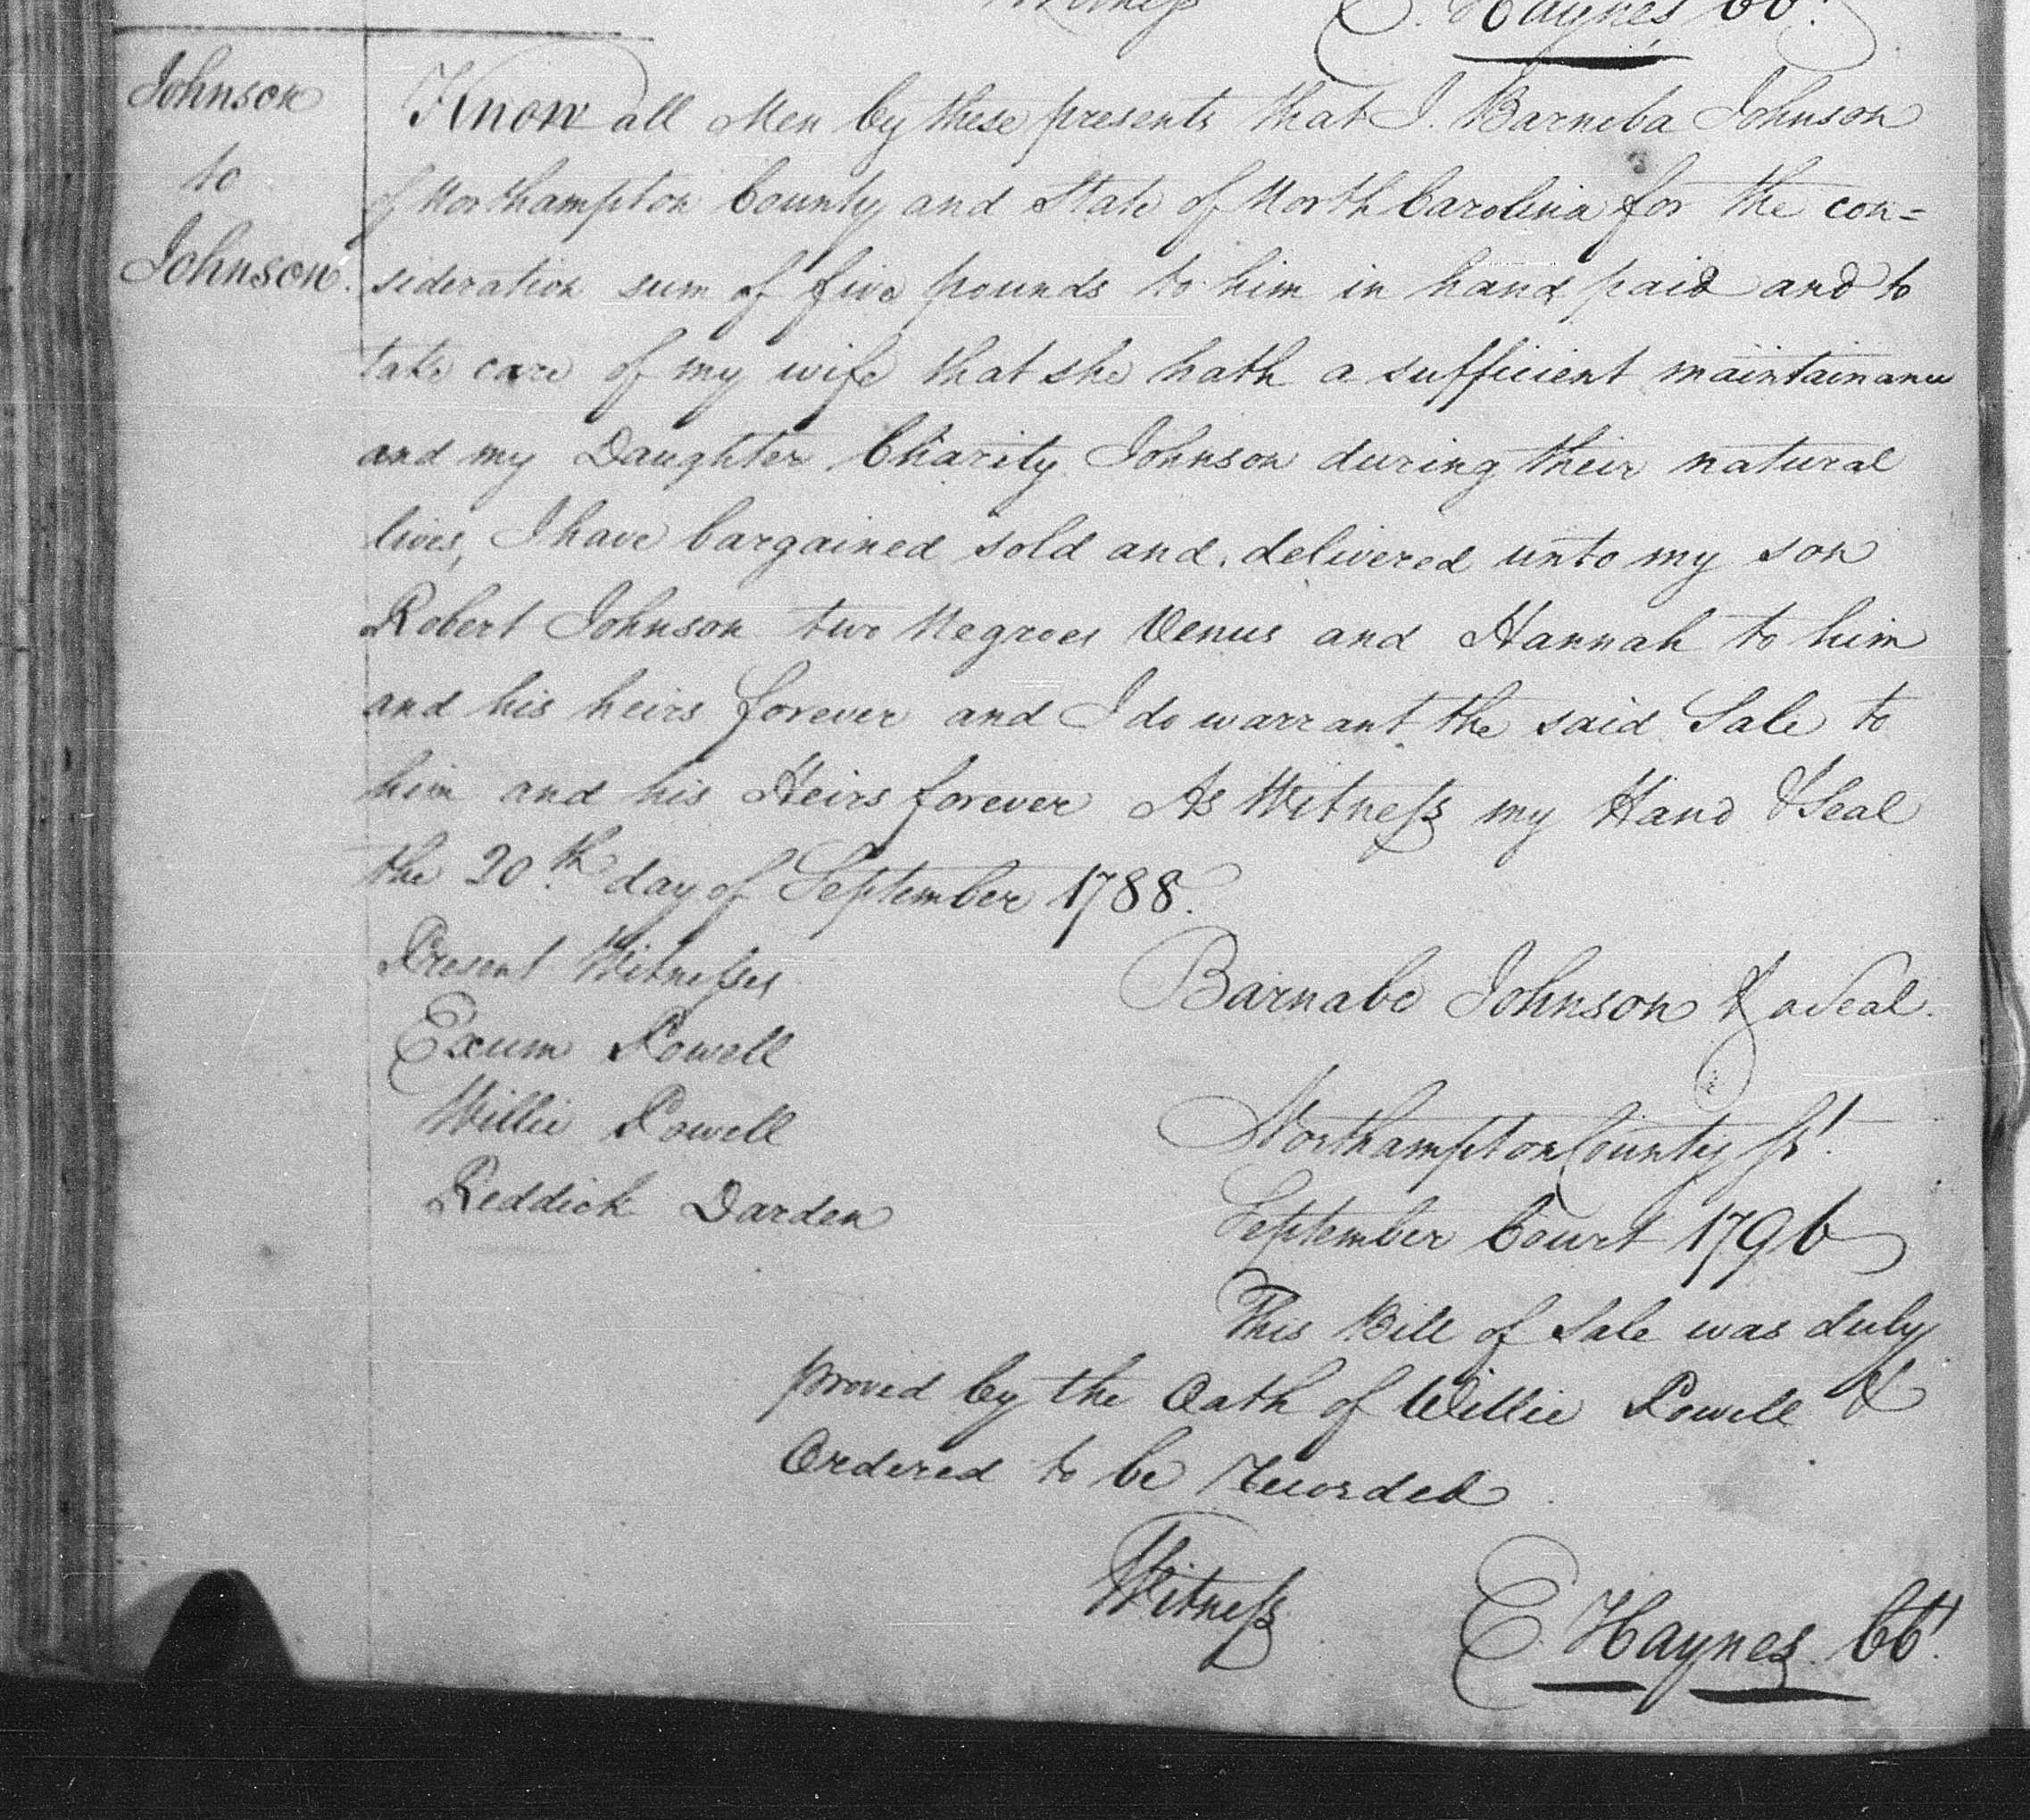 Witness E. Haynes CC.
Johnson
to
Johnson.
Know all Men by these presents that I. Barneba Johnson
of Northampton County and State of North Carolina for the con=
sideration sum of five pounds to him in hand paid and to
take care of my wife that she hath a sufficient maintainance
and my Daughter Charity Johnson during their natural
lives, I have bargained sold and delivered unto my son
Robert Johnson two Negroes Venus and Hannah to him
and his heirs forever and I do warrant the said Sale to
him and his Heirs forever As Witness my Hand & Seal
the 20th day of September 1788.
Present Witnesses
Barnabe Johnson & a Seal.
Exum Powell
Willie Powell
Reddick Darden
Northampton County Sst.
September Court 1796
This Bill of Sale was duly
proved by the Oath of Willie Powell &
Ordered to be Recorded.
Witness
E. Haynes. CCt.